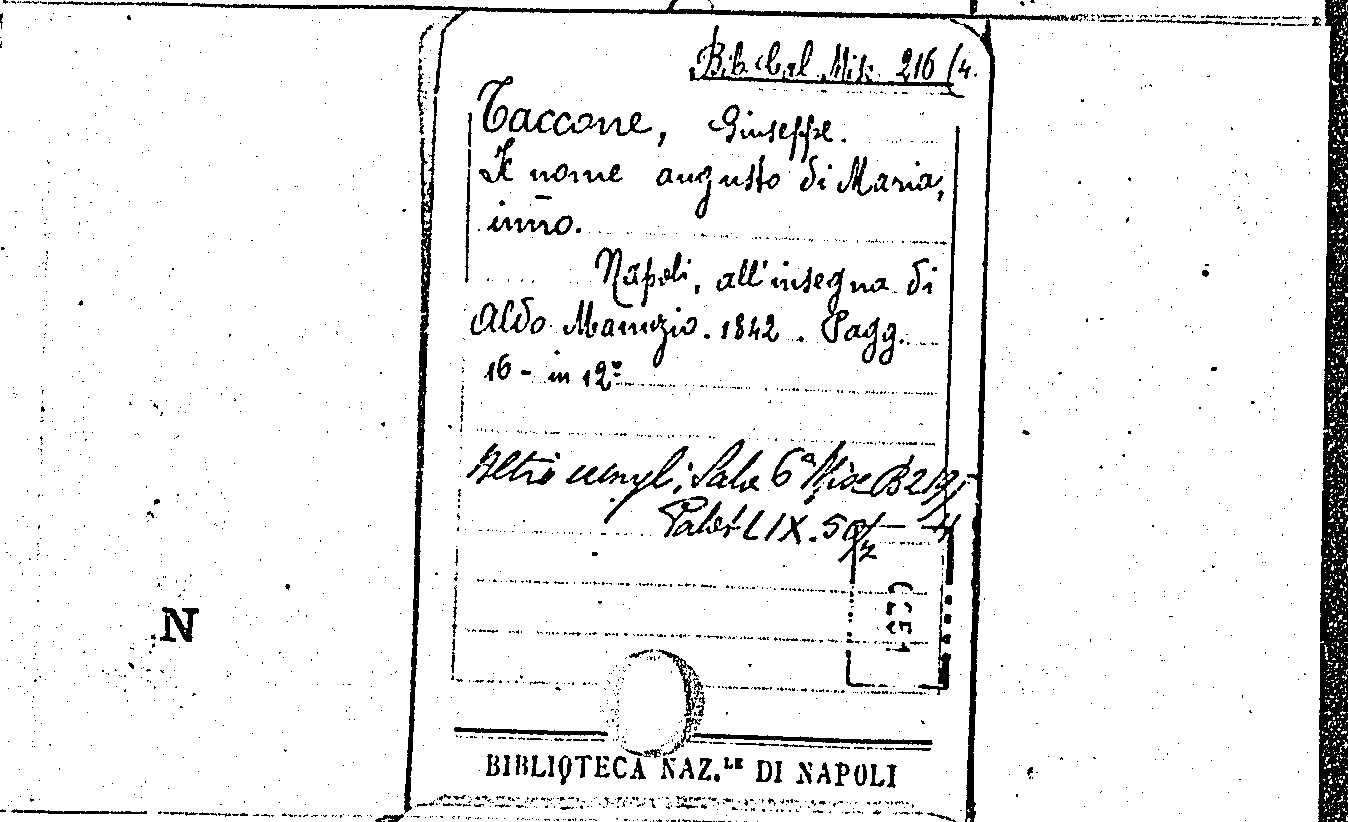 216/4.
Taccone, Giuseppe.
Il nome augusto di Maria,
inno.
Napoli, all'insegna di
Aldo Manuzio. 1842. Pagg.
16 - in 12º
Altri; Sala 6ª Misc B2
LIX. 50
N
BIBLIOTECA NAZ.LE DI NAPOLI